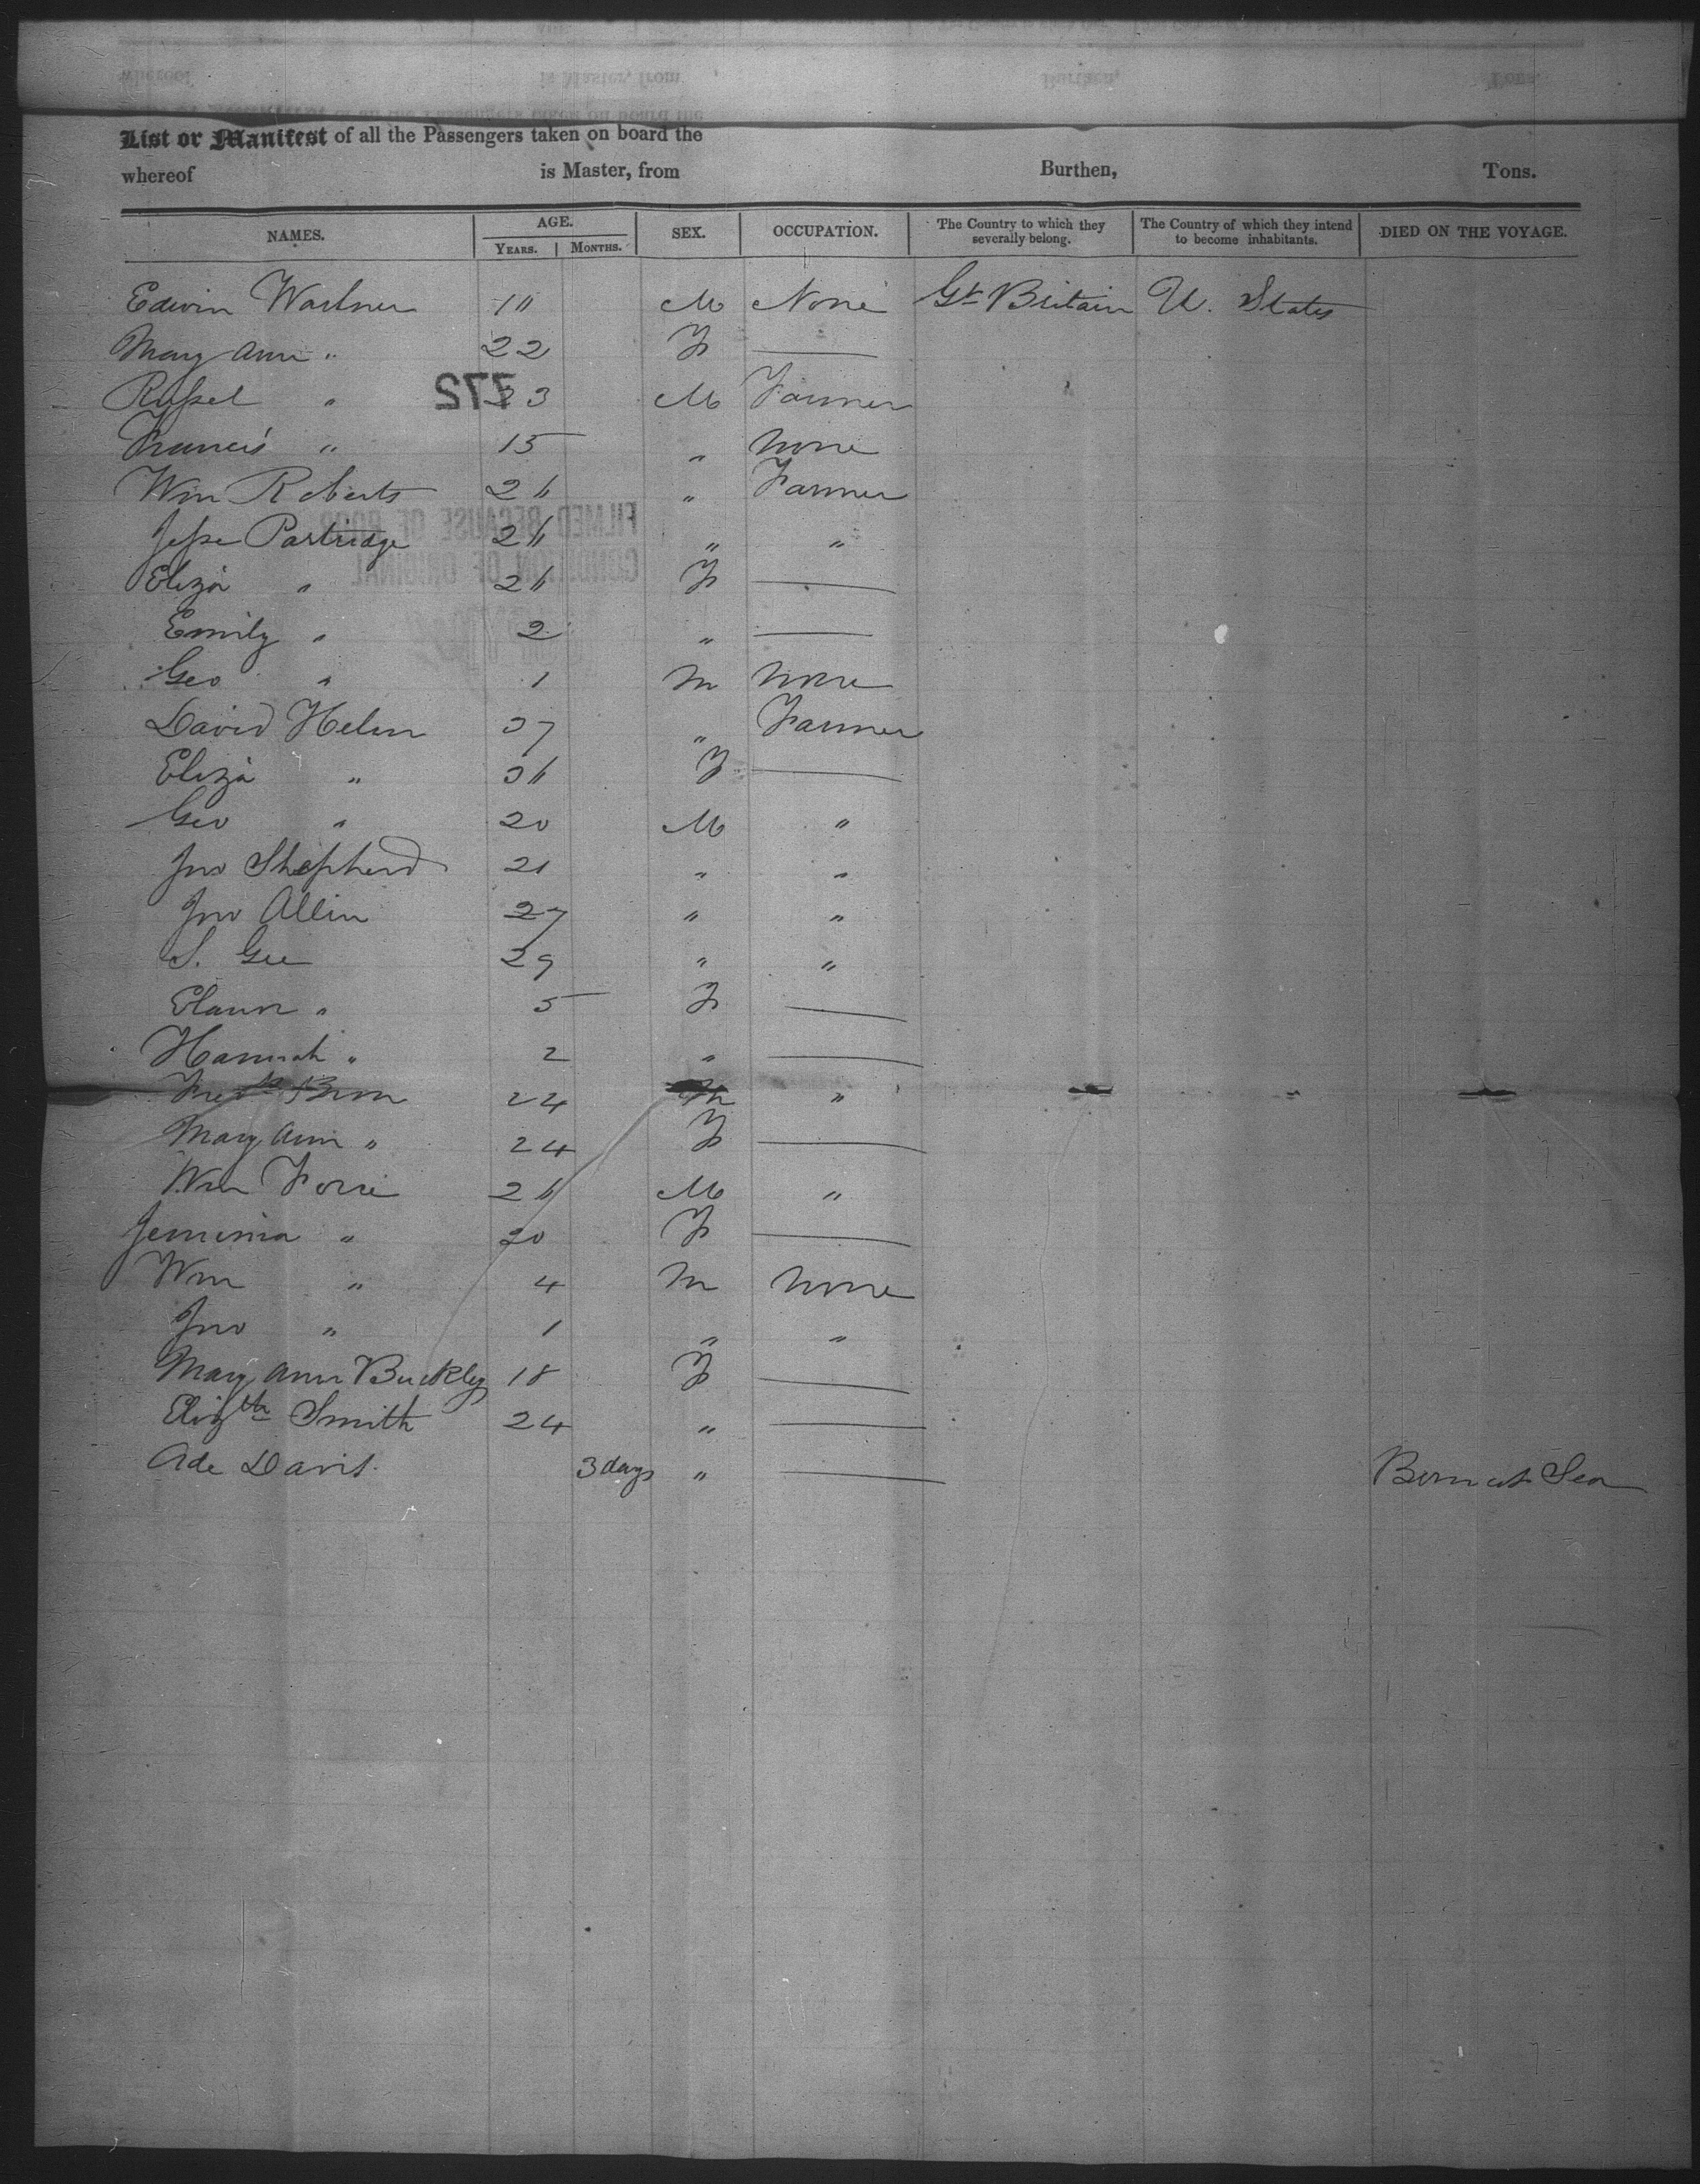 List or Manifest of all the Passengers taken on board the
whereof is Master, from Burthen, Tons.
NAMES. AGE. YEARS. MONTHS. SEX. OCCUPATION. The Country to which they severally belong. The Country of which they intend to become inhabitants. DIED ON THE VOYAGE.
Edwin 11 M None Gt Britain U. States
Mary Ann " 22 F —
Russel " 23 M Farmer
772
Francis " 15 " None
Wm Roberts 26 " Farmer
FILMED BECAUSE OF POOR
CONDITION OF ORIGINAL
Jesse Partridge 26 " "
Eliza " 26 F —
Emily " 2 " —
Geo " 1 M None
David Helm 37 " Farmer
Eliza " 36 F —
Geo " 20 M "
Jno Shepherd 21 " "
Jno Allin 27 " "
S. Gee 29 " "
" 5 F —
Hannah " 2 " —
Fredk 24 M " "
Mary Ann " 24 F —
Wm 26 M "
Jemima " 20 F —
Wm " 4 M None
Jno " 1 " "
Mary Ann Buckley 18 F —
Elizth Smith 24 " —
Ade Davis 3 days " — Born at Sea